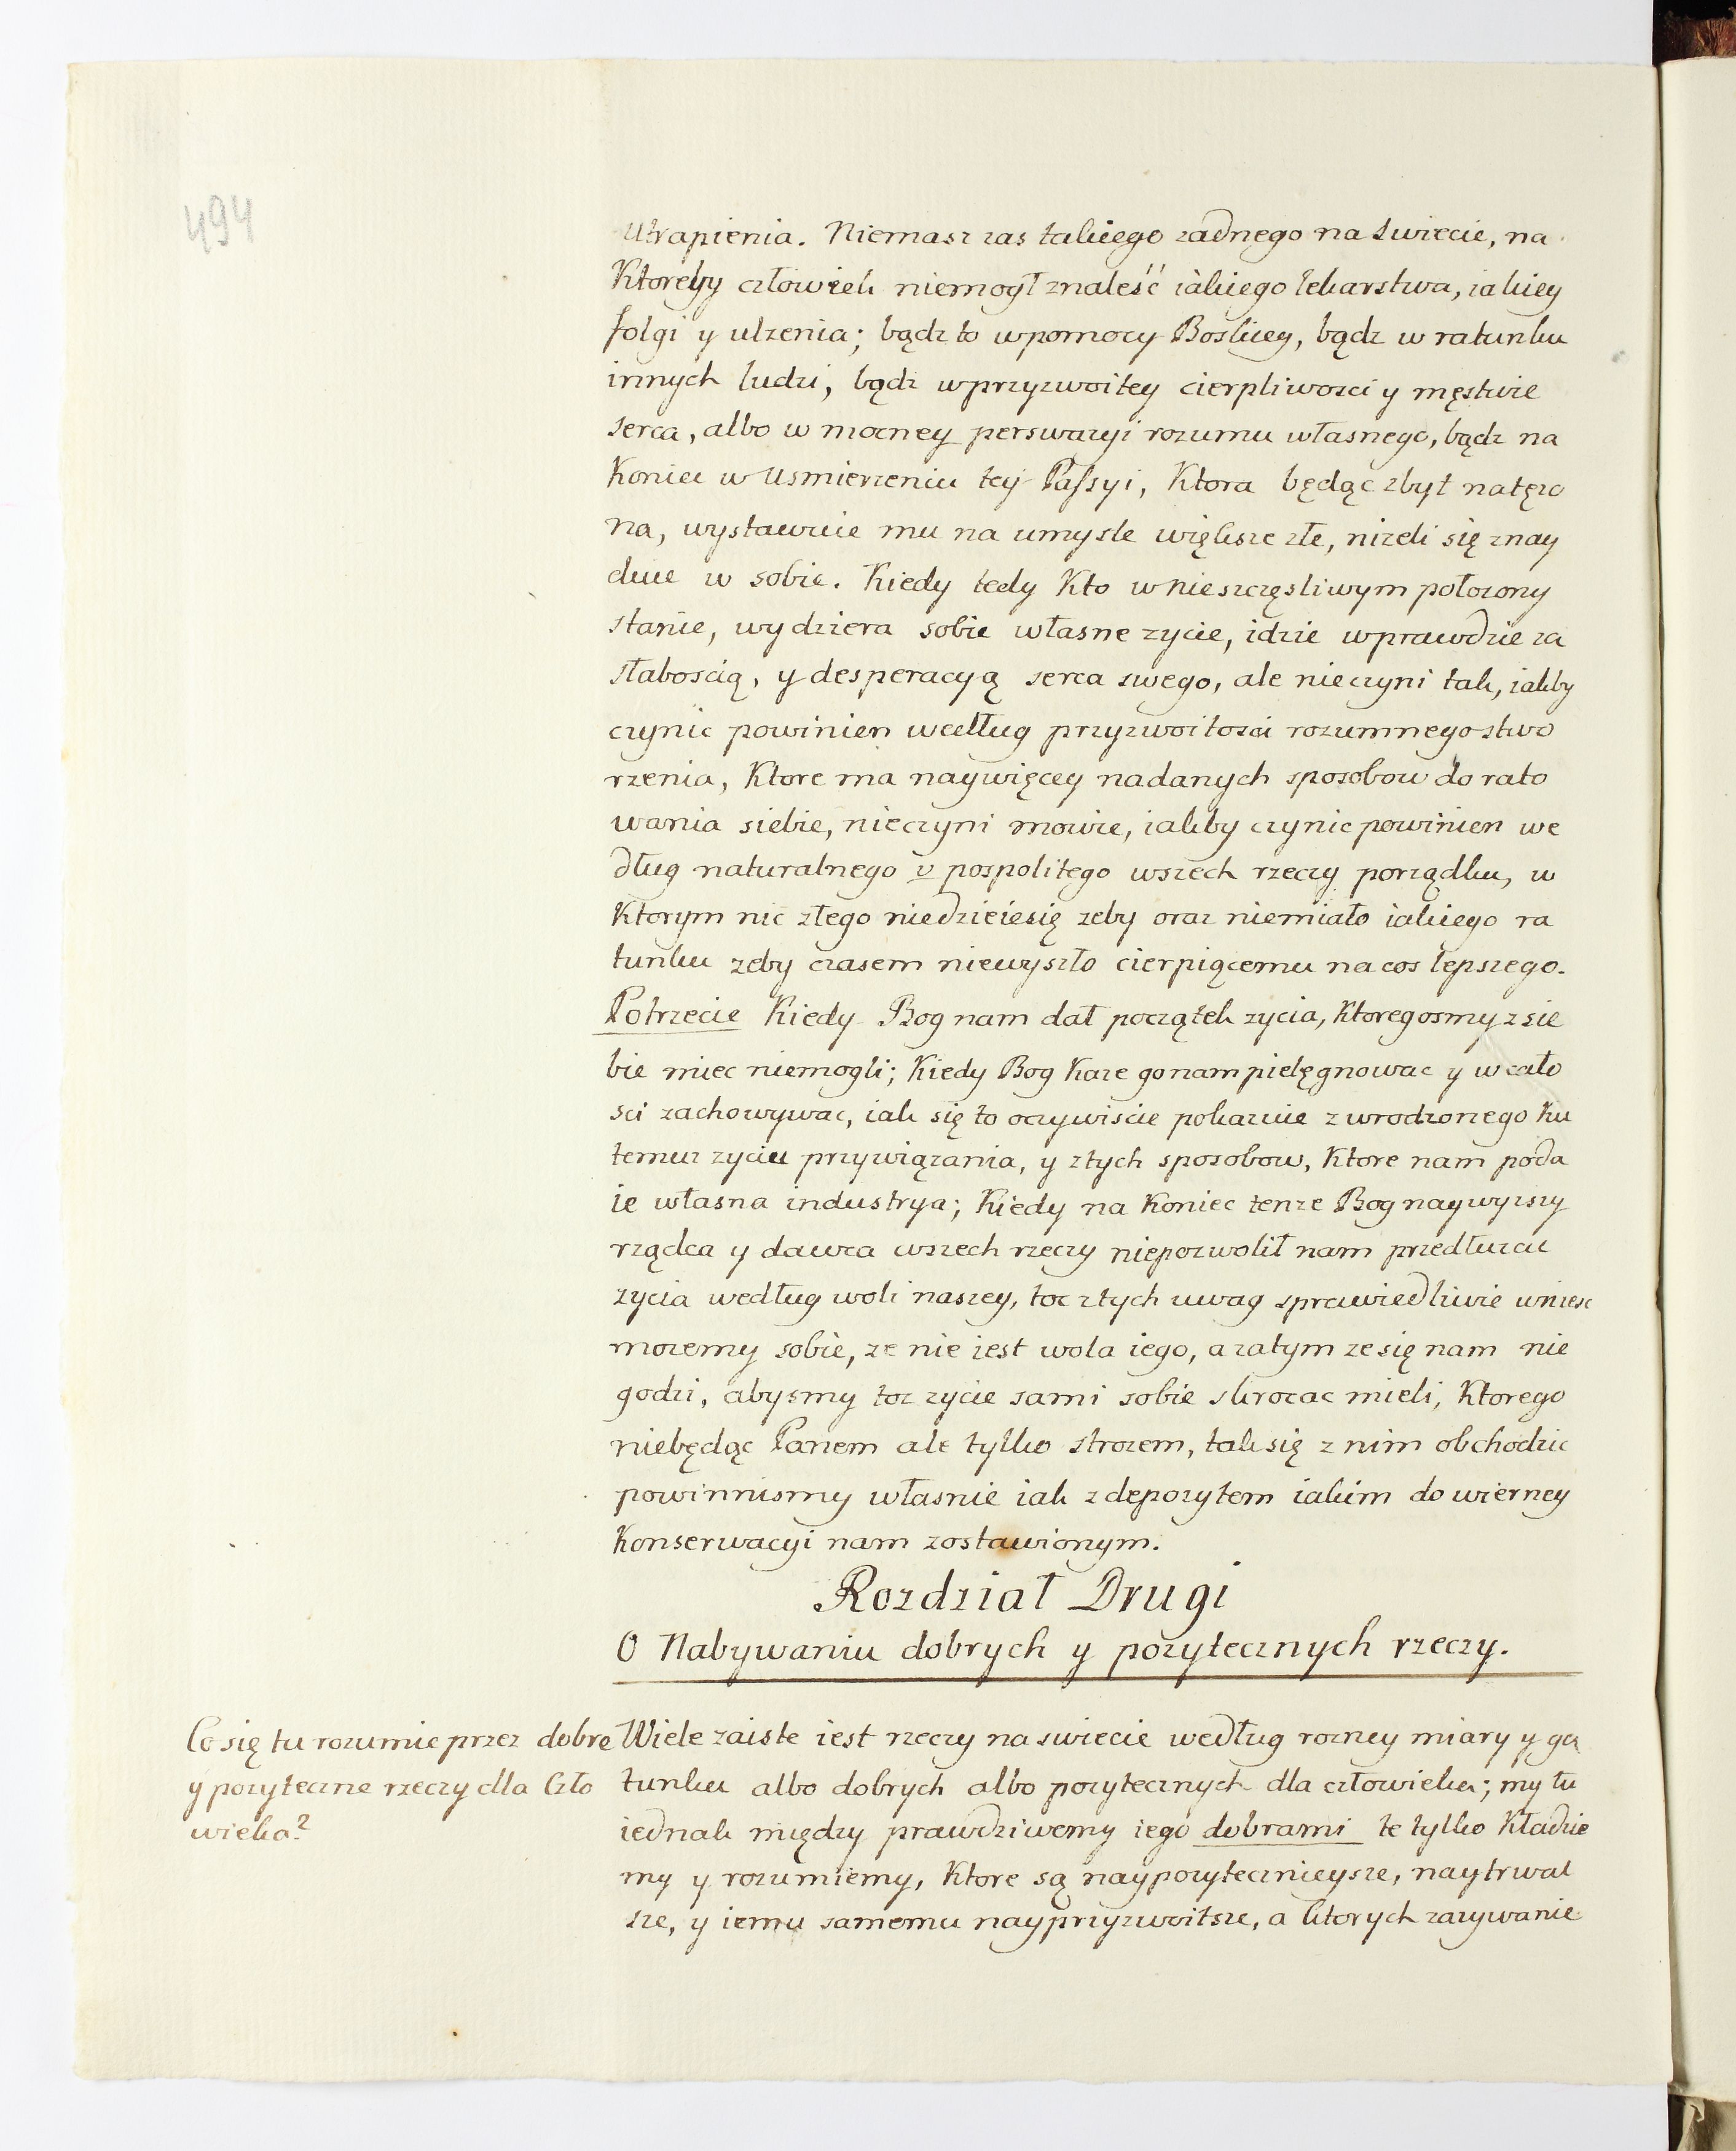 494
Utrapienia. Niemasz zas takiego zadnego na swiecie, na
Ktoreby człowiek niemogł znaleść iakiego lekarstwa, iakiey
folgi y ulzenia; bądz to wpomocy Boskiey, bądz w ratunku
innych ludzi, bądz wprzyzwoitey cierpliwosci y męstwie
serca, albo w mocney perswazyi rozumu własnego, bądz na
Koniec w Usmierzeniu tey Passyi, Ktora będąc zbyt natęzo
na, wystawuie mu na umysle większe złe, nizeli się znay
duie w sobie. Kiedy tedy Kto wnieszczęsliwym połozony
stanie, wydziera sobie własne zycie, idzie wprawdzie za
słaboscią, y desperacyą serca swego, ale nieczyni tak, iakby
czynic powinien według przyzwoitosci rozumnego stwo
rzenia, Ktore ma naywięcey nadanych sposobow do rato
wania siebie, nieczyni mowie, iakby czynic powinien we
dług naturalnego y pospolitego wszech rzeczy porządku, w
Ktorym nic złego niedzieiesię zeby oraz niemiało iakiego ra
tunku zeby czasem niewyszło cierpiącemu na cos lepszego.
Potrzecie Kiedy Bog nam dał początek zycia, Ktoregosmy z sie
bie miec niemogli; Kiedy Bog Kaze go nam pielęgnowac y w cało
sci zachowywac, iak się to oczywiscie pokazuie z wrodzonego Ku
temuz zyciu przywiązania, y ztych sposobow, Ktore nam poda
ie własna industrya; Kiedy na Koniec tenze Bog naywyzszy
rządca y dawca wszech rzeczy niepozwolił nam przedłuzac
zycia według woli naszey, toc ztych uwag sprawiedliwie wniesc
mozemy sobie, ze nie iest wola iego, a zatym ze się nam nie
godzi, abysmy toz zycie sami sobie skrocac mieli, Ktorego
niebędąc Panem ale tylko strozem, tak się z nim obchodzic
powinnismy własnie iak z depozytem iakim do wierney
Konserwacyi nam zostawionym.
Rozdział Drugi
O Nabywaniu dobrych y pozytecznych rzeczy.
Co się tu rozumie przez dobre
y pozyteczne rzeczy dla Czło
wieka?
Wiele zaiste iest rzeczy na swiecie według rozney miary y ga
tunku albo dobrych albo pozytecznych dla człowieka; my tu
iednak między prawdziwemy iego dobrami te tylko Kładzie
my y rozumiemy, Ktore są naypozytecznieysze, naytrwal
sze, y iemu samemu nayprzyzwoitsze, a Ktorych zazywanie